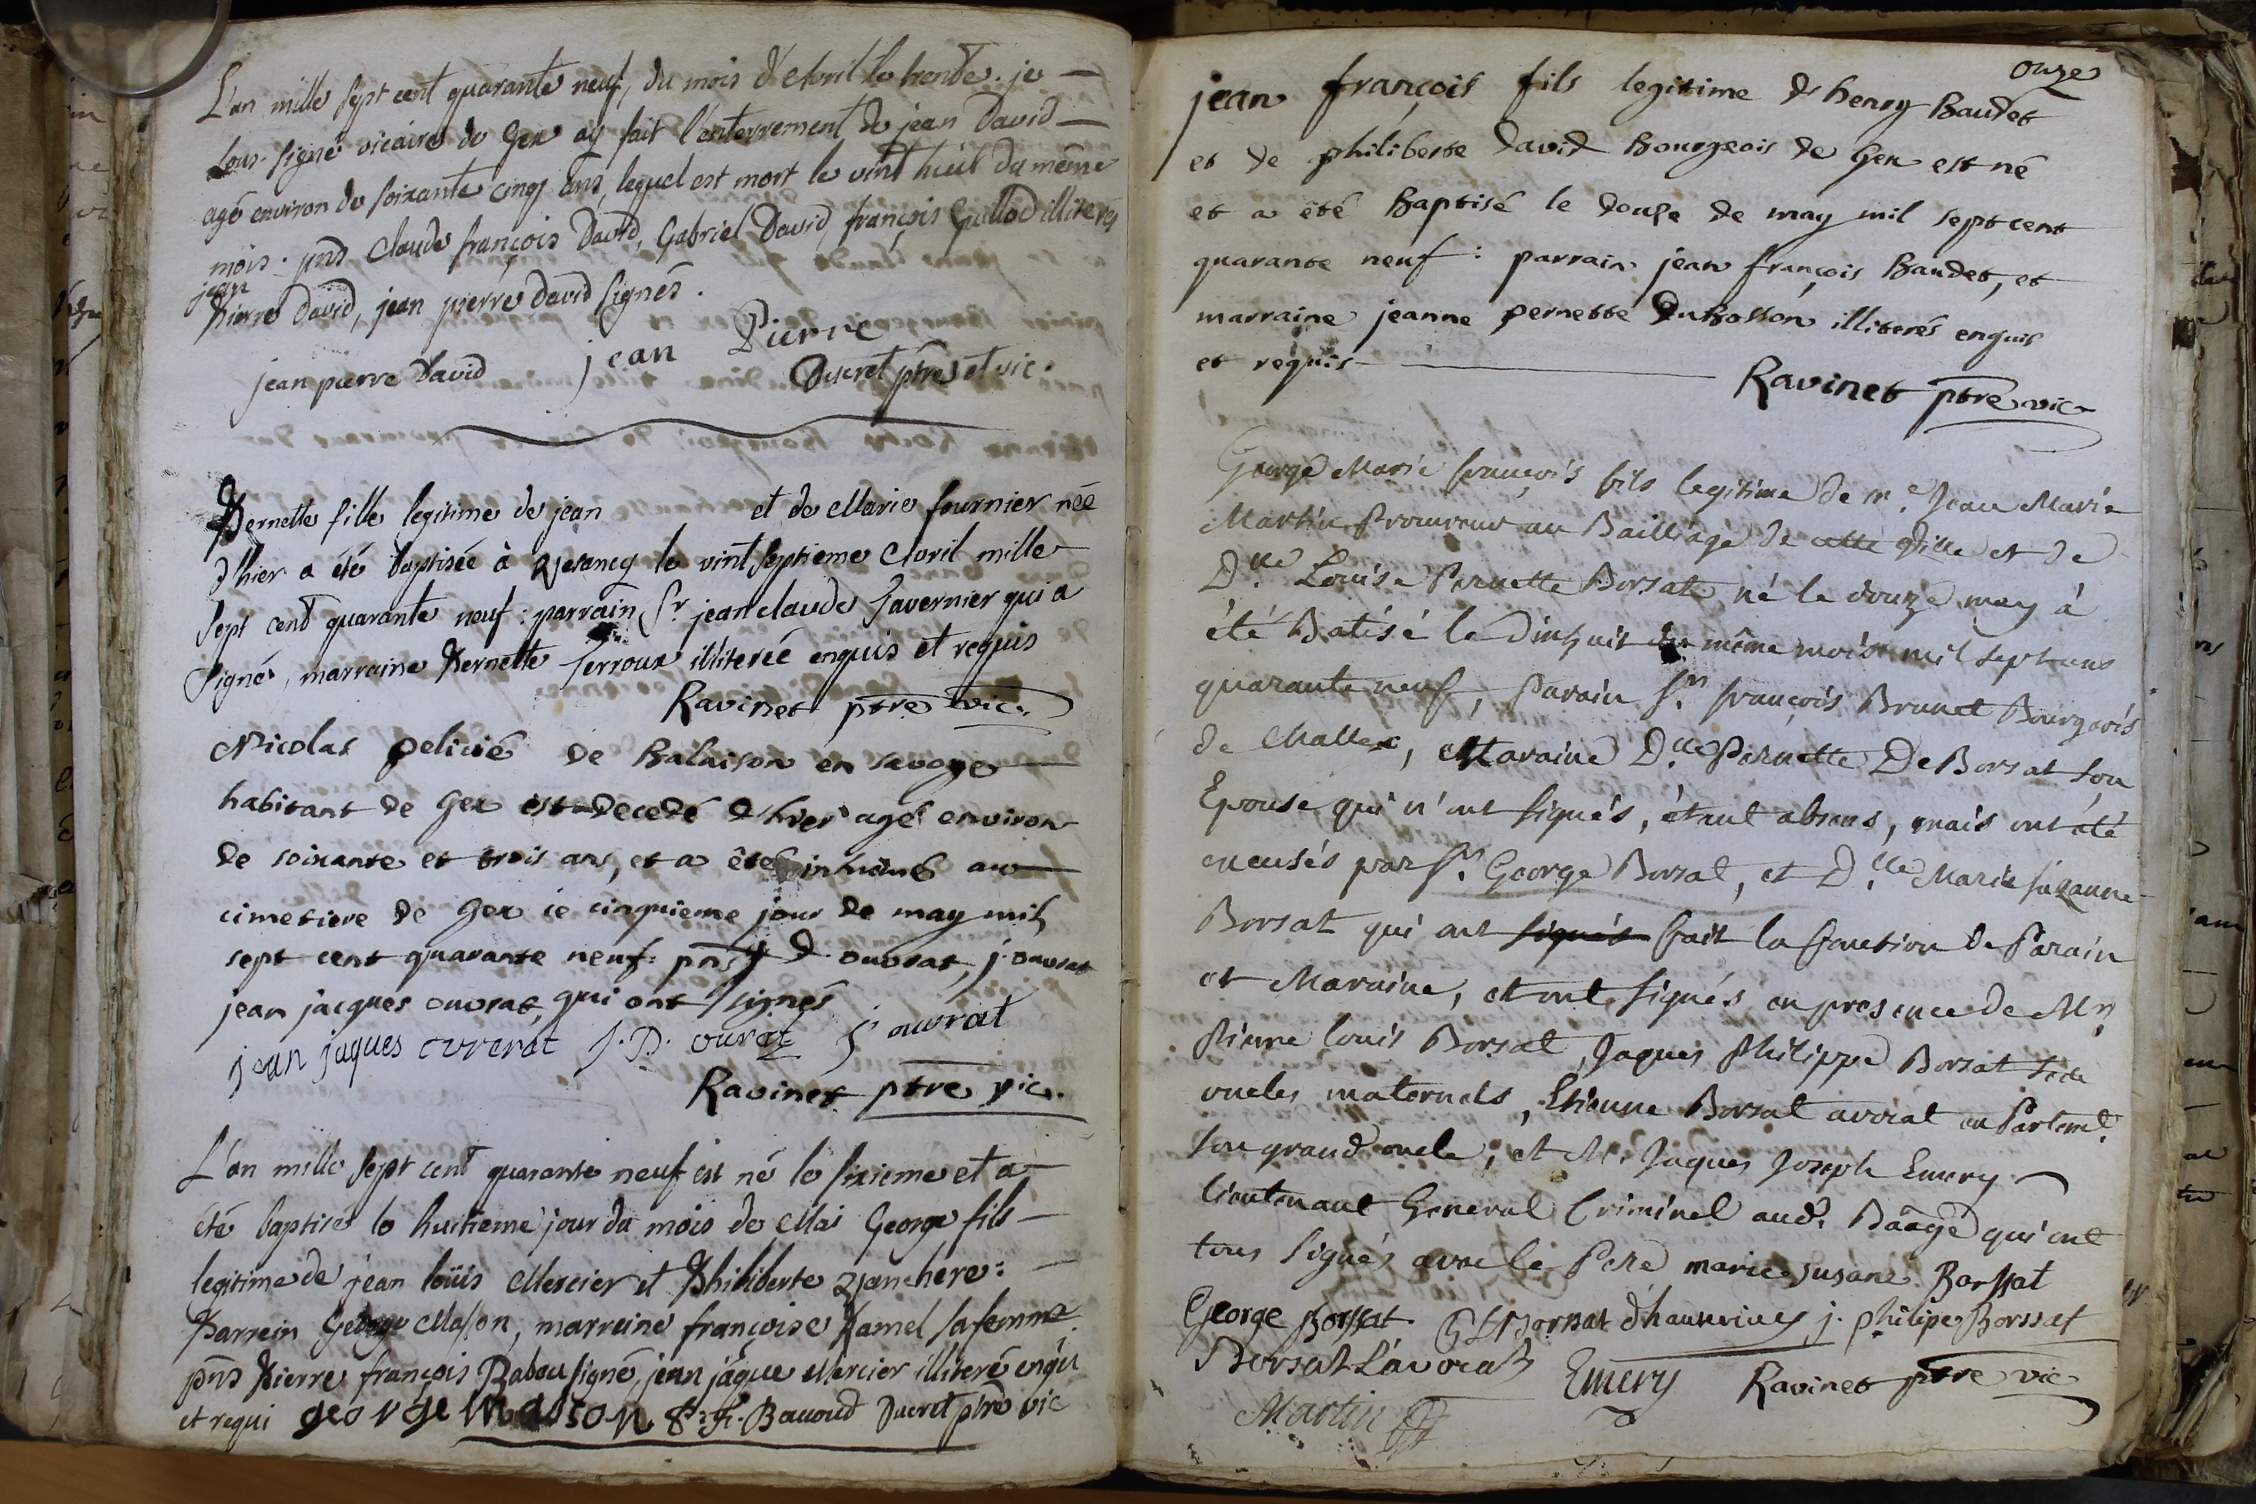 L'an mille sept cent quarante neuf, du mois d'Avril le trente. je
sous-signé vicaire de Gex ay fait l'enterrement de jean David
agé environ de soixante cinq ans, lequel est mort le vint huit du même
mois. pnts Claude françois David, Gabriel David, françois Gullod illiterés
jean
Pierre David, jean pierre david signés.
jean pierre david jean Pierre
Ducret ptre et vic.
Pernette fille legitime de jean et de Marie fournier née
d'hier a été baptisée à Vesancy le vint septieme Avril mille
sept cent quarante neuf: parrain Sr. jean claude Tavernier qui a
signé, marraine Pernette Perroux illiterée enquis et requis
Ravinet ptre vic.
Nicolas pelicié de Balaison en savoye
habitant de Gex est decedé d'hier agé environ
de soixante et trois ans, et a été inhumé au
cimetiere de Gex ce cinquieme jour de may mil
sept cent quarante neuf: pnts d. ouvrat, j. ouvrat
jean jacques ouvrat, qui ont signés
jean jaques ovrerat J. D. ovrat J ouvrat
Ravinet ptre vic.
L'an mille sept cent quarante neuf est né le sixieme et a
été baptisé le huitieme jour du mois de Mai George fils
legitime de jean loüis Mercier et Philiberte
Parrein George Masson, marreine françoise Hamel sa femme
pnts Pierre françois Babou signé, jean jâque Mercier illiteré enqui
et requi george masson P: f. Bavoud Ducret ptre vic
onze
jean françois fils legitime d'henry Baudet
et de philiberte david Bourgeois de Gex est né
et a été Baptisé le douze de may mil sept cent
quarante neuf: parrain jean françois Baudet, et
marraine jeanne pernette duBosson illiterés enquis
et requis
Ravinet ptre vic
George Marie françois fils legitime de me. Jean Marie
Martin Procureur au Bailliage de cette Ville et de
Dlle. Louise Pernette Borsat, né le douze may à
été Batisé le Dixhuit du même mois mil sept cens
quarante neuf, Parain Sr. françois Brunet Bourgeois
de Mattex, et Maraine Dlle. Pernette De Borsat son
Epouse qui n'ont signés, étant absens, mais ont été
excusés par Sr. George Borsat, et Dlle. Marie Suzanne
Borsat qui ont signés fait la fonction de Parain
et Maraine, et ont signés en presence de Mrs
Pierre louis Borsat, Jaques Philippe Borsat ses
oncles maternels, Etienne Borsat avocat en Parlemt.
son grand oncle, et Mr. Jaques Joseph Emery
lieutenant General Criminel aud. Baage qui ont
tous signés avec le Pere marie susane Borssat
George Borssat PLBorssat d'hauterives j. philipe Borssat
Borsat L'avocat Emery Ravinet ptre vic
Martin